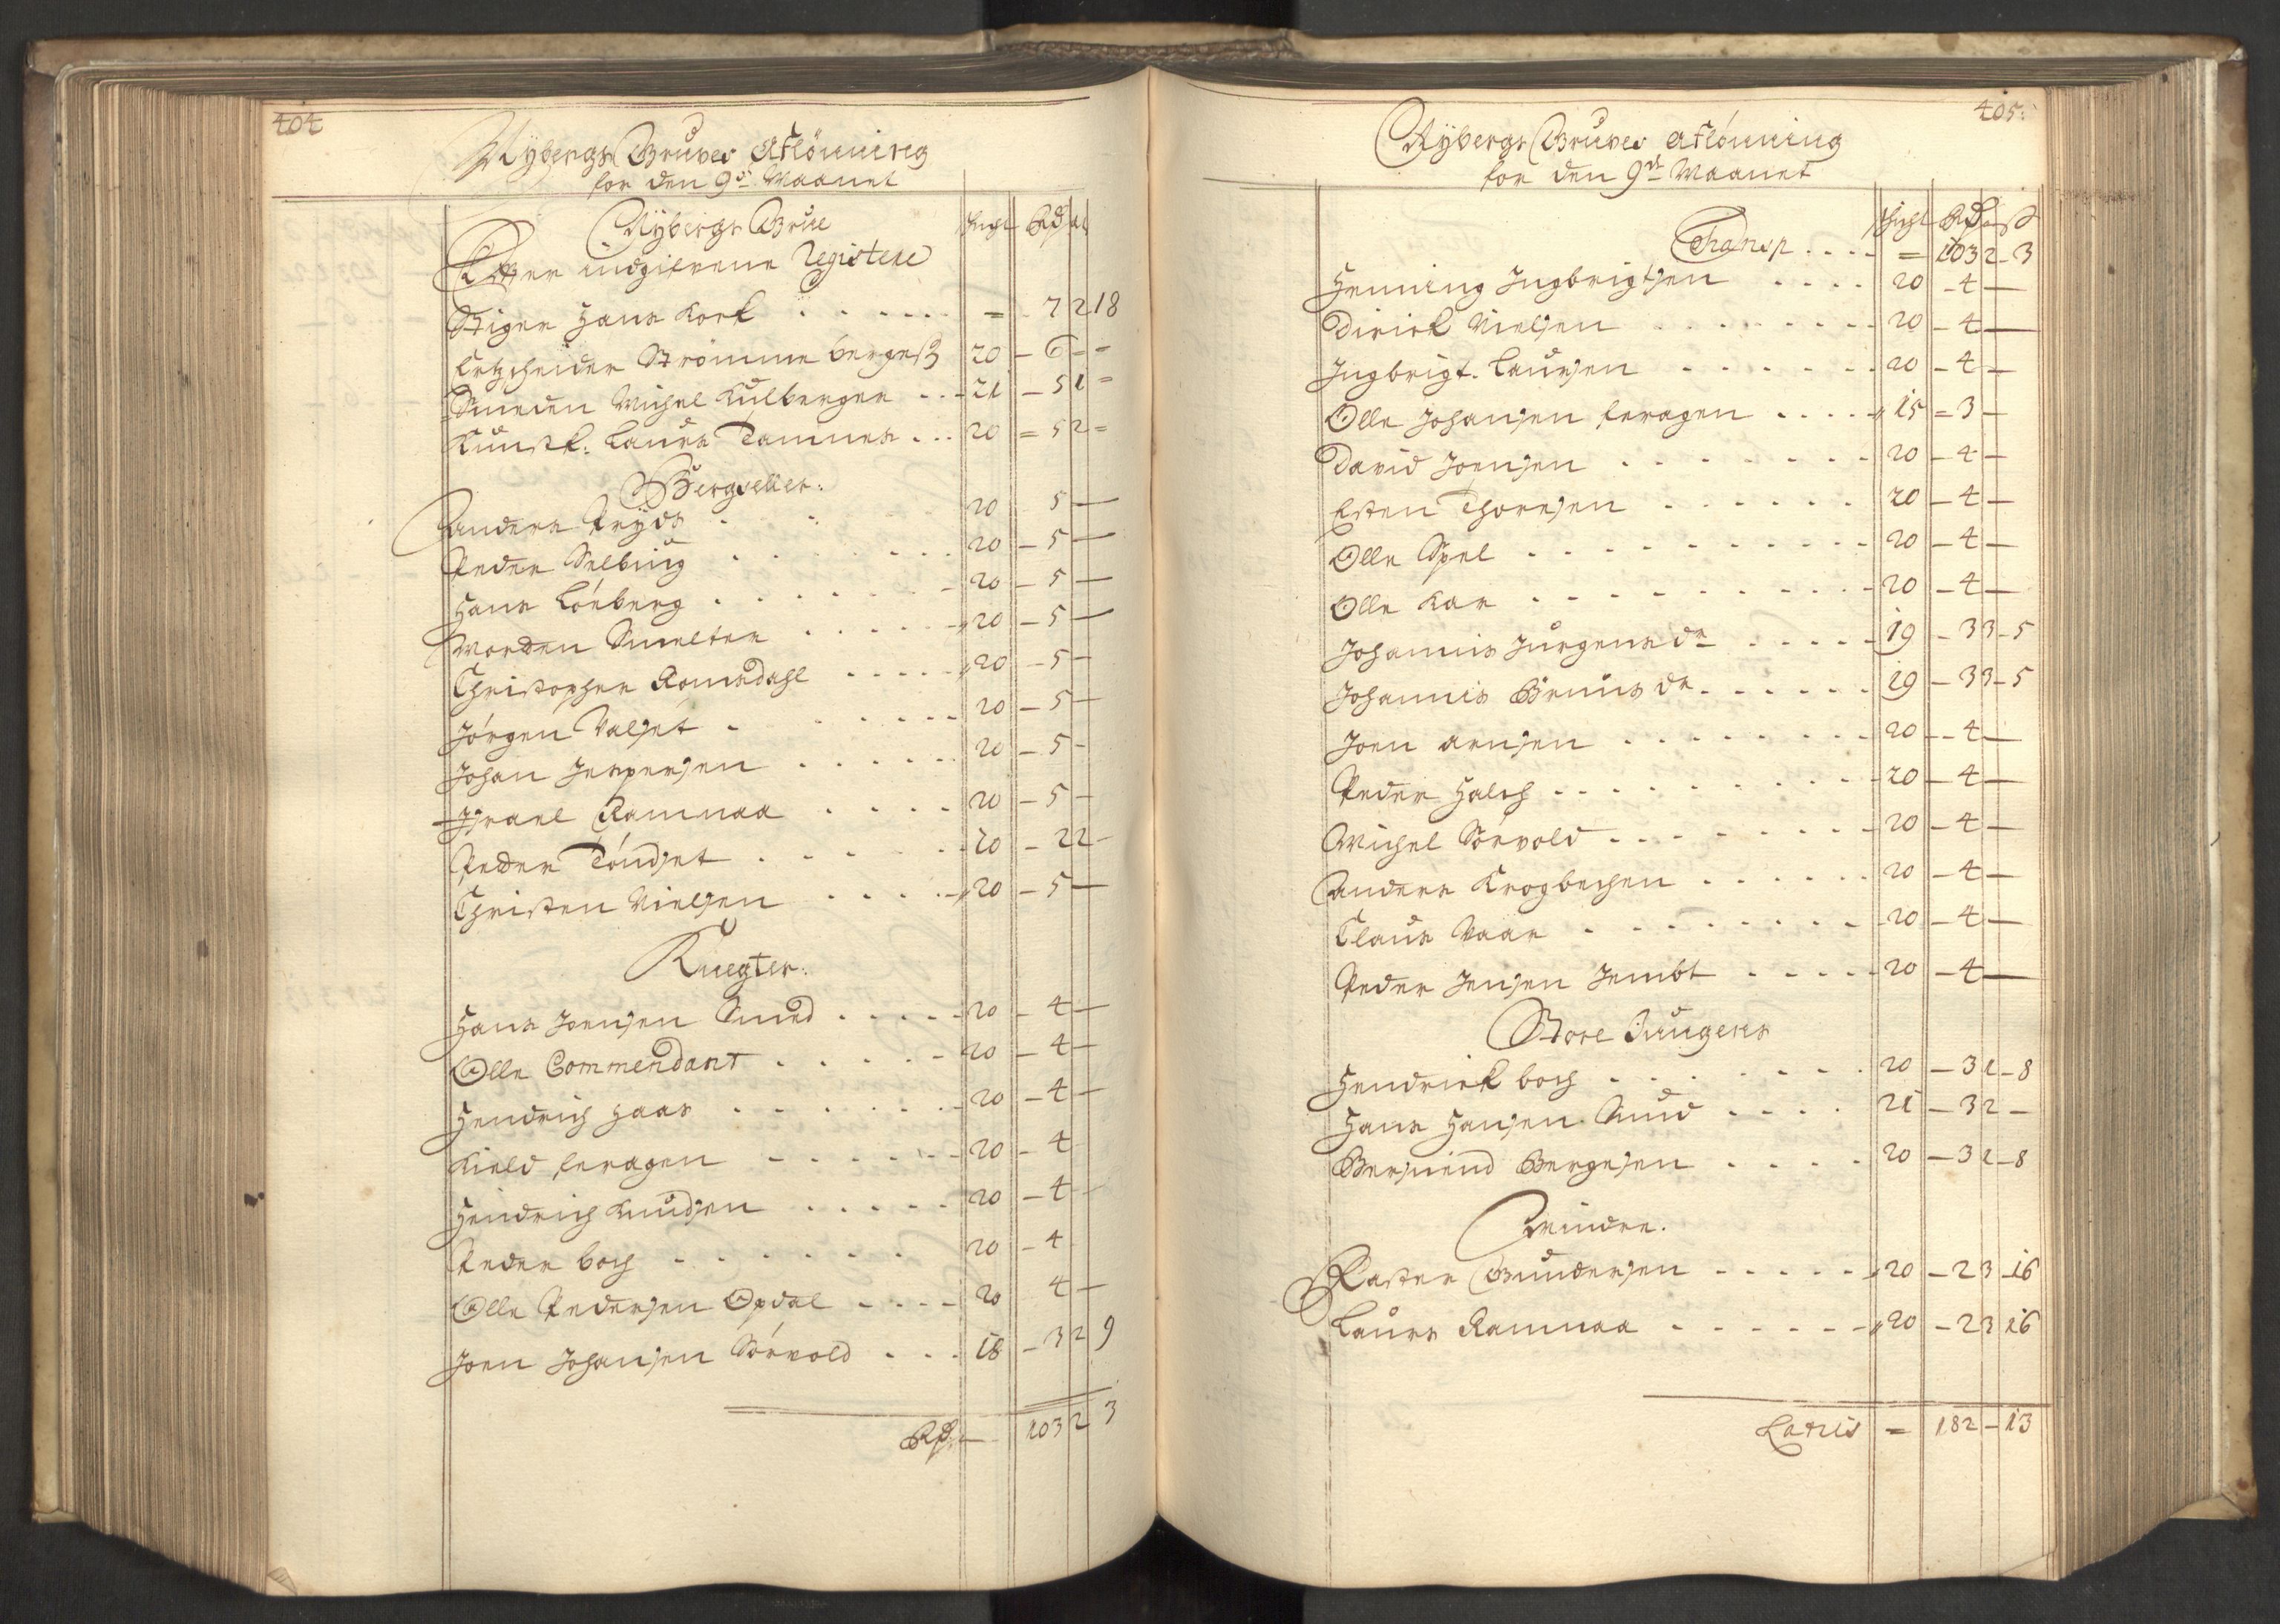 404
Nybergs Gruves Aflönning
for den 9de Maanet
Nybergs Grue
Skigt Rd ort
Efter indgifvene Registere
Stiger Hans Kork . . . . . = 7 2 18
Ertzscheider Strömme bergesz 20 - 6 - -
Smeden Michel Kulberger . . - 21 - 5 1 =
Kunstk: Laurs Tamnes . . . 20 = 5 2 =
Bergseller:
Anders Pryds . . 20 5 -
Peder Selbuig . . . . . 20 - 5 -
Hans Lönberg . . . . . 20 - 5 -
Morden Smelter . . . . 20 - 5 -
Christopher Romsdahl . . . . 20 - 5 -
Jörgen Valset . . . . . 20 - 5 -
Johan Jespersen . . . . . 20 - 5 -
Israel Ramnaa . . . . 20 - 5 -
Peder Töndset . . . . . 20 - 2 2 -
Christen Nielsen . . . . 20 - 5 -
Knegter:
Hans Joensen Smed . . . . . 20 - 4 -
Olle Commendant . . . . . 20 - 4 -
Hendrich Haas . . . . . . 20 - 4 -
Kield feragen - - . . . . 20 - 4
Hendrich Knudsen . . . . . 20 - 4 -
Peder boch - . . . . . . 20 - 4
Olle Pedersen Opdal . . . . 20 4 -
Joen Johansen Sörvold . . . 18 - 3 2 9
Rdr - 103 2 3
405:
Nybergs Gruves Aflönning
for den 9de Maanet
Skigt Rd ort ß
Transp . . . . = 103 2 - 3
Henning Ingbrigtsen . . . . 20 - 4 -
Dirick Nielsen . . . . . . . 20 - 4 -
Ingbrigt Laursen . . . . . . 20 - 4 -
Olle Johansen feragen . . . . 15 = 3 -
David Joensen . . . . . . . 20 - 4 -
Esten Thoresen . . . . . . 20 - 4 -
Olle Spel . . . . . . . . . 20 - 4 -
Olle Kar . . . . . . . . . 20 - 4 -
Johannis Jürgens dr - . . . . 19 - 3 3 - 5
Johannis Brüns dr . . . . . . 19 - 3 3 - 5
Joen Arnsen . . . . . . . . 20 - - 4 -
Peder Halch . . . . . . . . 20 - 4 -
Michel Sörvold . . . . . . . 20 - 4 -
Anders Krogbechen . . . . . . 20 - 4 -
Claus Vaar . . . . . . . . 20 - 4 -
Peder Jensen Jembt . . . . . 20 - 4 -
Store Jungens
Hendrick boch . . . . . . . 20 - 3 1 - 8
Hans Hansen Smed . . . . 21 - 3 2 -
Bersuend Bergesen . . . . . 20 - 3 1 - 8
Mindre.
Rasten Gundersen - . . . . 20 - 2 3 - 16
Laurs Ramnaa - . . . . . 20 - 2 3 16
Latus = 182 - 13